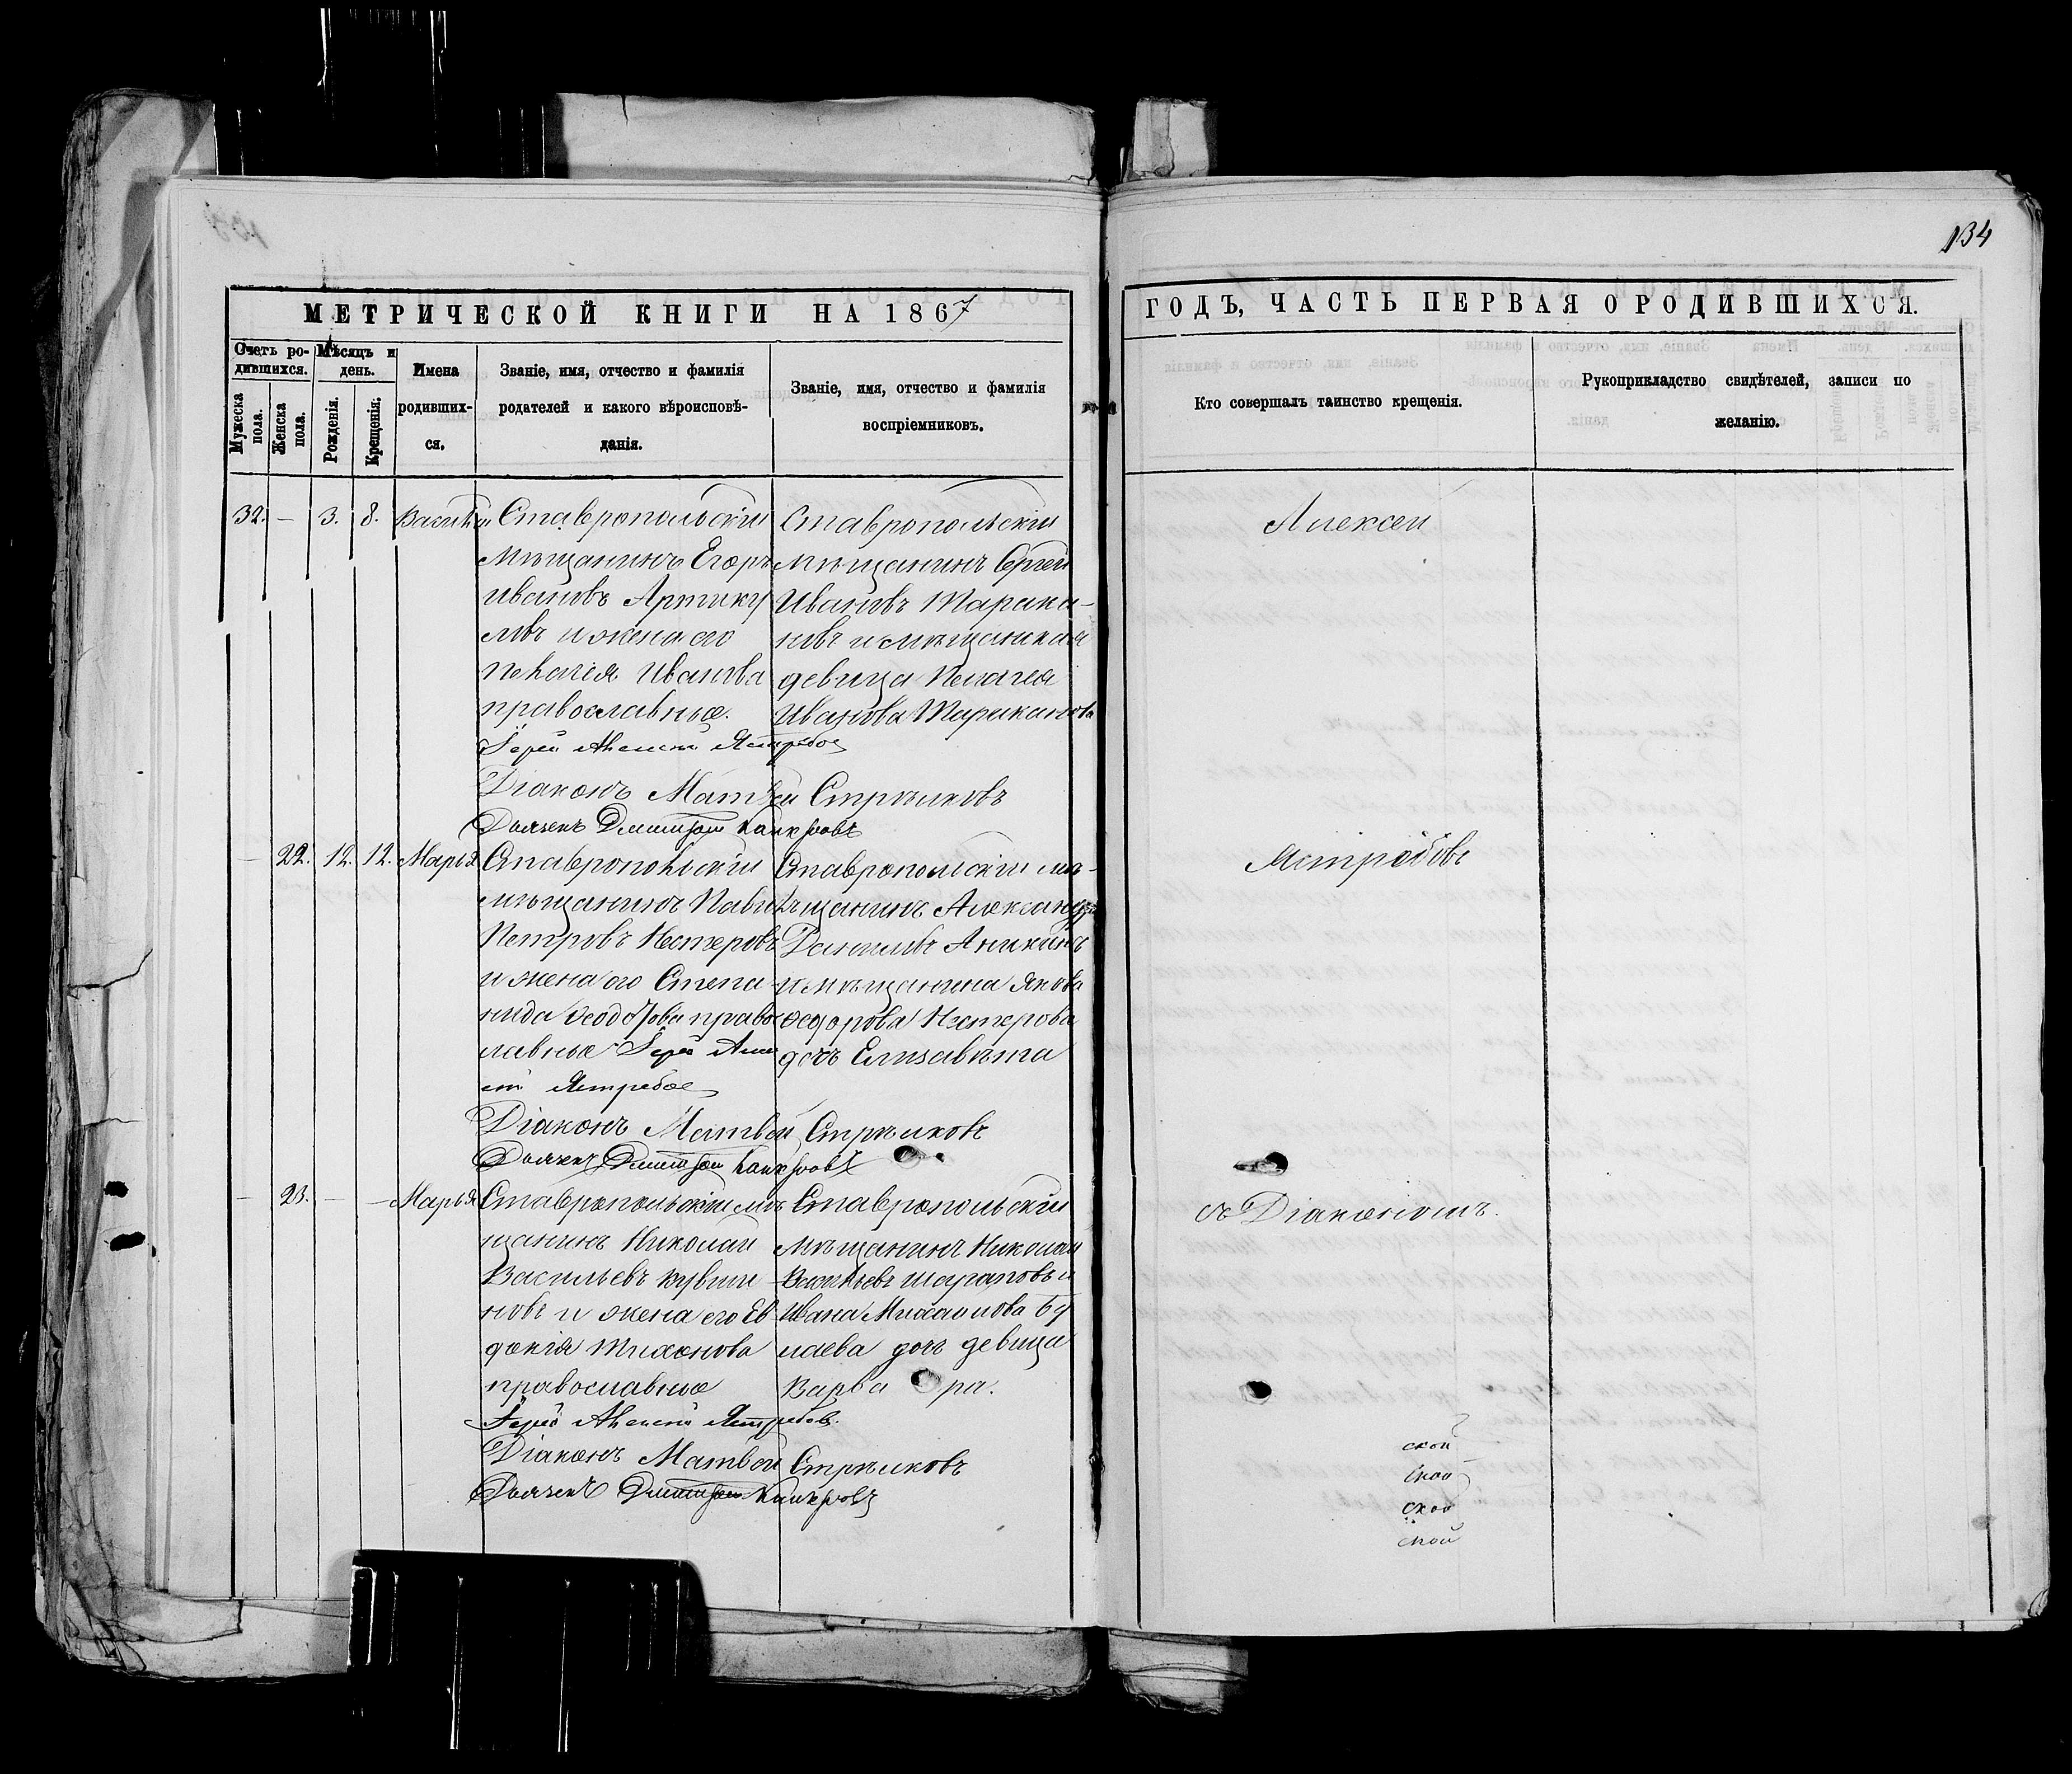 134
МЕТРИЧЕСКОЙ КНИГИ НА 1867
ГОДЪ, ЧАСТЬ ПЕРВАЯ О РОДИВШИХСЯ.
Счетъ ро-
дившихся.
Мужеска пола.
Женска пола.
Мѣсяцъ и
день.
Рожденія.
Крещенія.
Имена
родивших-
ся.
Званіе, имя, отчество и фамилія
родителей и какого вѣроисповѣ-
данія.
Званіе, имя, отчество и фамилія
воспріемниковъ.
Кто совершалъ таинство крещенія.
Рукоприкладство свидѣтелей, записи по
желанію.
32. — 3. 8. Василій
Ставропольскій
мѣщанинъ Егоръ
Ивановъ Артику
ловъ и жена его
Пелагія Иванова
православные.
Ставропольскій
мѣщанинъ Сергей
Ивановъ Тарака-
новъ и мѣщанская
девица Пелагея
Иванова Тараканова
Алексей
Іерей Алексей Ястребов
Діаконъ Матвей Стрѣлковъ
Дьячекъ Дмитрий
— 22. 12. 12. Марья
Ставропольскій
мѣщанинъ Павелъ
Петровъ Нестеровъ
и жена его Степа-
нида Феодорова правос
лавные Іерей Алек
сей Ястребов
Ставропольскій мѣ-
щанинъ Александръ
Даниловъ Аникинъ
и мѣщанина Якова
Федорова Нестерова
дочь Елизавѣта
Ястребовъ
Діаконъ Матвей Стрѣлковъ
Дьячекъ Дмитрий
— 23. — — Марья
Ставропольскій мѣ
щанинъ Николай
Васильевъ Кувши
новъ и жена его Ев
докія Тихонова
православные
Ставропольскій
мѣщанинъ Николай
Васильевъ Шараповъ и
Ивана Михайлова Бу
лаева дочь девица
Варва ра.
съ Діакономъ.
Іерей Алексей Ястребов.
Діаконъ Матвей Стрѣлковъ
Дьячекъ Дмитрий
ской
ской
ской
ской